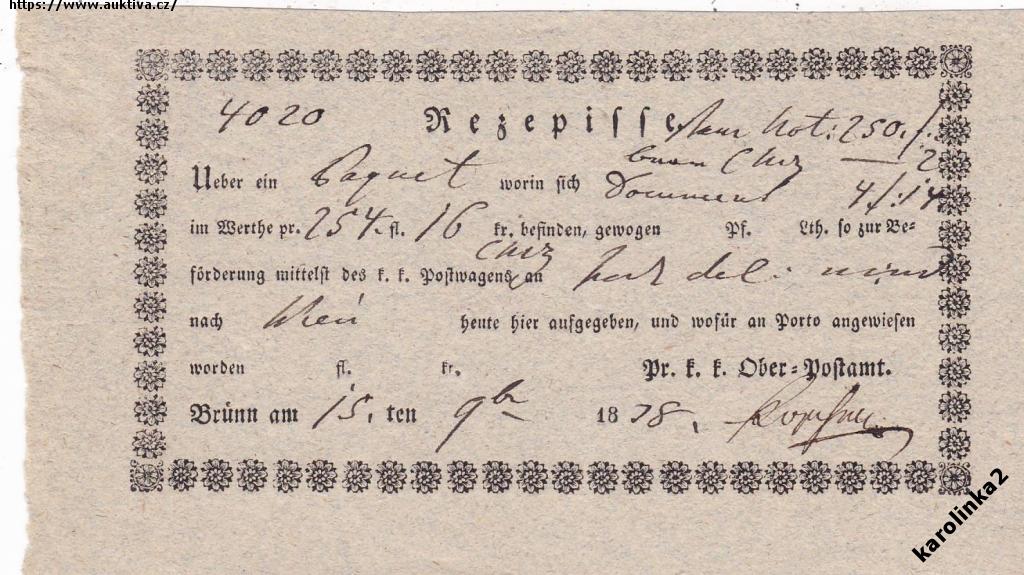 https://www.auktiva.cz/
4020 Rezepisse Not: 250. f.
2
Ueber ein Paquet worin sich 4 f: 14
im Werthe pr. 254. fl. 16 kr. befinden, gewogen Pf. Lth. so zur Be-
förderung mittelst des k. k. Postwagens an
nach Wien heute hier aufgegeben, und wofür an Porto angewiesen
worden fl. kr. Pr. k. k. Ober-Postamt.
Brünn am 15. ten 9br 18
karolinka2